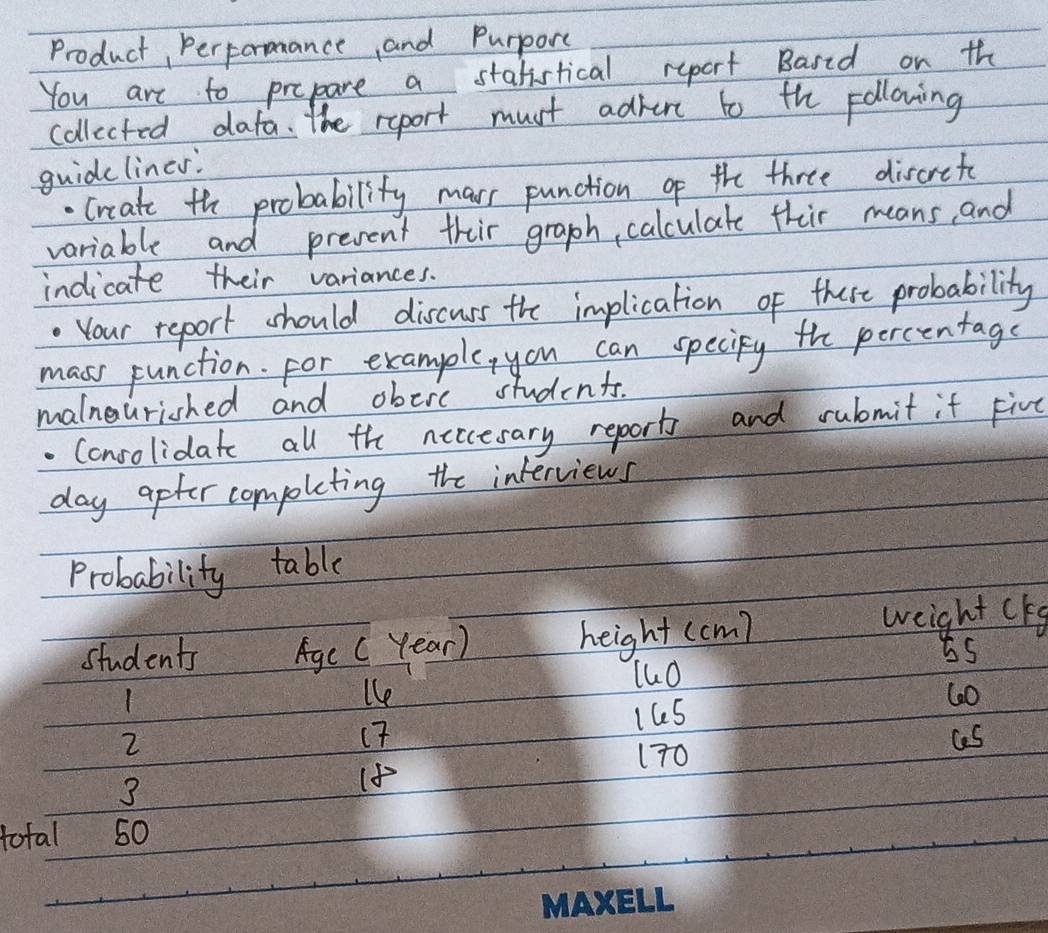 Product, Performance, and Purpore
You are to prepare a statistical report Based on the
collected data. The report must adhere to the following
guidelines:
• Create the probability mass function of the three discrete
variable and present their graph, calculate their means, and
indicate their variances.
• Your report should discuss the implication of these probability
mass function. For example, you can specify the percentage
malnourished and obese students.
• Consolidate all the neccesary reports and submit it five
day after completing the interviews
Probability table
students Age ( Year) height (cm) weight (kg
1 16 160 55
2 17 165 60
3 18 170 65
total 50
MAXELL